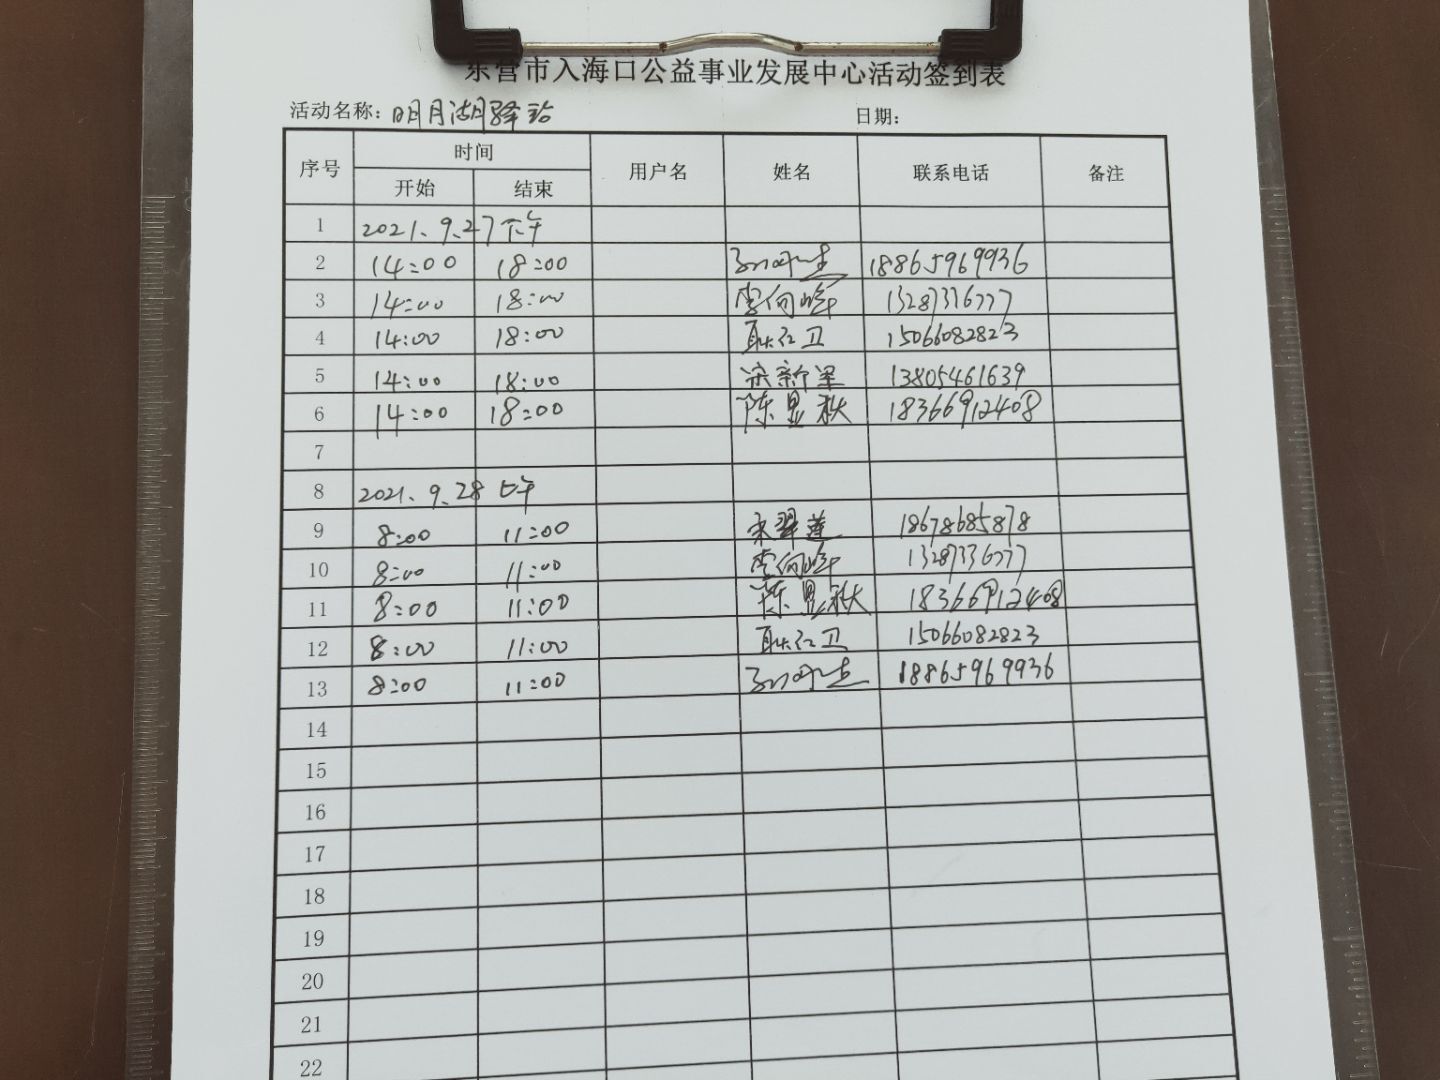 东营市入海口公益事业发展中心活动签到表
活动名称: 明月湖驿站 日期:
序号 时间 用户名 姓名 联系电话 备注
开始 结束
1 2021.9.27下午
2 14:00 18:00 18865969936
3 14:00 18:00 李向峰 13287336777
4 14:00 18:00 耿红卫 15066082823
5 14:00 18:00 13805461639
6 14:00 18:00 陈显秋 18366912408
7
8 2021.9.28 上午
9 8:00 11:00 宋翠莲 18678685878
10 8:00 11:00 李向峰 13287336777
11 8:00 11:00 陈显秋 18366912408
12 8:00 11:00 耿红卫 15066082823
13 8:00 11:00 18865969936
14
15
16
17
18
19
20
21
22